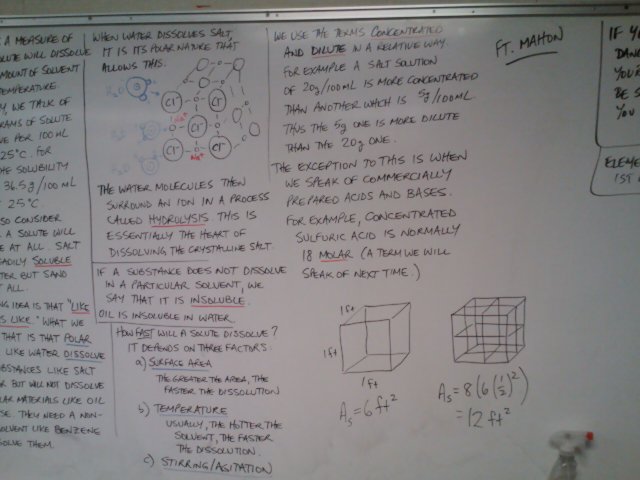 A MEASURE OF
LUTE WILL DISSOLVE
MOUNT OF SOLVENT
TEMPERATURE.
, WE TALK OF
RAMS OF SOLUTE
VE PER 100 mL
25°C. FOR
HE SOLUBILITY
36.5g/100 mL
25°C.
SO CONSIDER
A SOLUTE WILL
E AT ALL. SALT
EADILY SOLUBLE
TER BUT SAND
ALL.
NG IDEA IS THAT "LIKE
S LIKE." WHAT WE
THAT IS THAT POLAR
LIKE WATER DISSOLVE
BSTANCES LIKE SALT
R BUT WILL NOT DISSOLVE
LAR MATERIALS LIKE OIL
SE. THEY NEED A NON-
SOLVENT LIKE BENZENE
SOLVE THEM.
WHEN WATER DISSOLVES SALT,
IT IS ITS POLAR NATURE THAT
ALLOWS THIS.
H₂O
Cl⁻
Cl⁻
Na⁺
Cl⁻
Cl⁻
Cl⁻
Na⁺
THE WATER MOLECULES THEN
SURROUND AN ION IN A PROCESS
CALLED HYDROLYSIS. THIS IS
ESSENTIALLY THE HEART OF
DISSOLVING THE CRYSTALLINE SALT.
IF A SUBSTANCE DOES NOT DISSOLVE
IN A PARTICULAR SOLVENT, WE
SAY THAT IT IS INSOLUBLE.
OIL IS INSOLUBLE IN WATER.
HOW FAST WILL A SOLUTE DISSOLVE?
IT DEPENDS ON THREE FACTORS:
a) SURFACE AREA
THE GREATER THE AREA, THE
FASTER THE DISSOLUTION
b) TEMPERATURE
USUALLY, THE HOTTER THE
SOLVENT, THE FASTER
THE DISSOLUTION.
c) STIRRING/AGITATION
WE USE THE TERMS CONCENTRATED
AND DILUTE IN A RELATIVE WAY.
FOR EXAMPLE A SALT SOLUTION
OF 20g/100mL IS MORE CONCENTRATED
THAN ANOTHER WHICH IS 5g/100mL.
THUS THE 5g ONE IS MORE DILUTE
THAN THE 20g ONE.
THE EXCEPTION TO THIS IS WHEN
WE SPEAK OF COMMERCIALLY
PREPARED ACIDS AND BASES.
FOR EXAMPLE, CONCENTRATED
SULFURIC ACID IS NORMALLY
18 MOLAR (A TERM WE WILL
SPEAK OF NEXT TIME.)
1ft
1ft
1ft
As = 6 ft²
As = 8(6(1/2)²)
= 12 ft²
FT. MAHON
IF YO
DANG
YOU'
BE S
YOU
ELEME
1ST